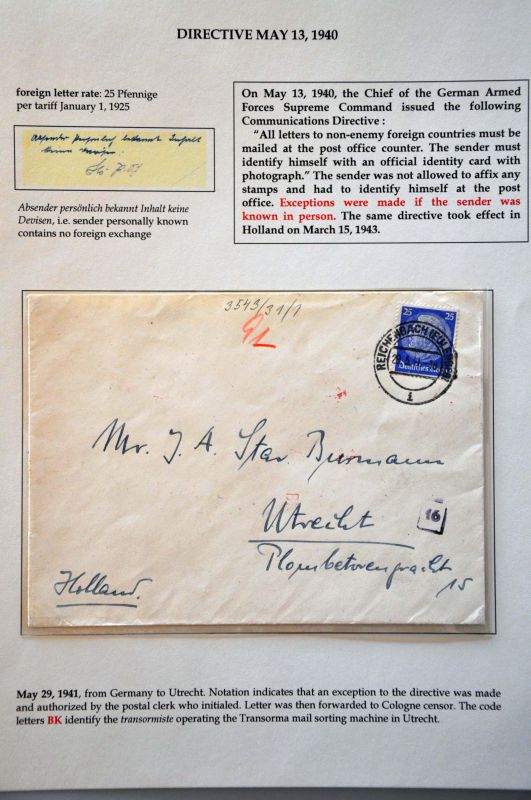 DIRECTIVE MAY 13, 1940
foreign letter rate: 25 Pfennige
per tariff January 1, 1925
Absender persönlich bekannt Inhalt
keine
Absender persönlich bekannt Inhalt keine
Devisen, i.e. sender personally known
contains no foreign exchange
On May 13, 1940, the Chief of the German Armed
Forces Supreme Command issued the following
Communications Directive :
“All letters to non-enemy foreign countries must be
mailed at the post office counter. The sender must
identify himself with an official identity card with
photograph.” The sender was not allowed to affix any
stamps and had to identify himself at the post
office. Exceptions were made if the sender was
known in person. The same directive took effect in
Holland on March 15, 1943.
3543/31/1
25 25
Deutsches Reich
REICHENBACH
i
Mr. J. A. Star Busmann
Utrecht
16
Plompetorengracht
15
Holland.
May 29, 1941, from Germany to Utrecht. Notation indicates that an exception to the directive was made
and authorized by the postal clerk who initialed. Letter was then forwarded to Cologne censor. The code
letters BK identify the transormiste operating the Transorma mail sorting machine in Utrecht.